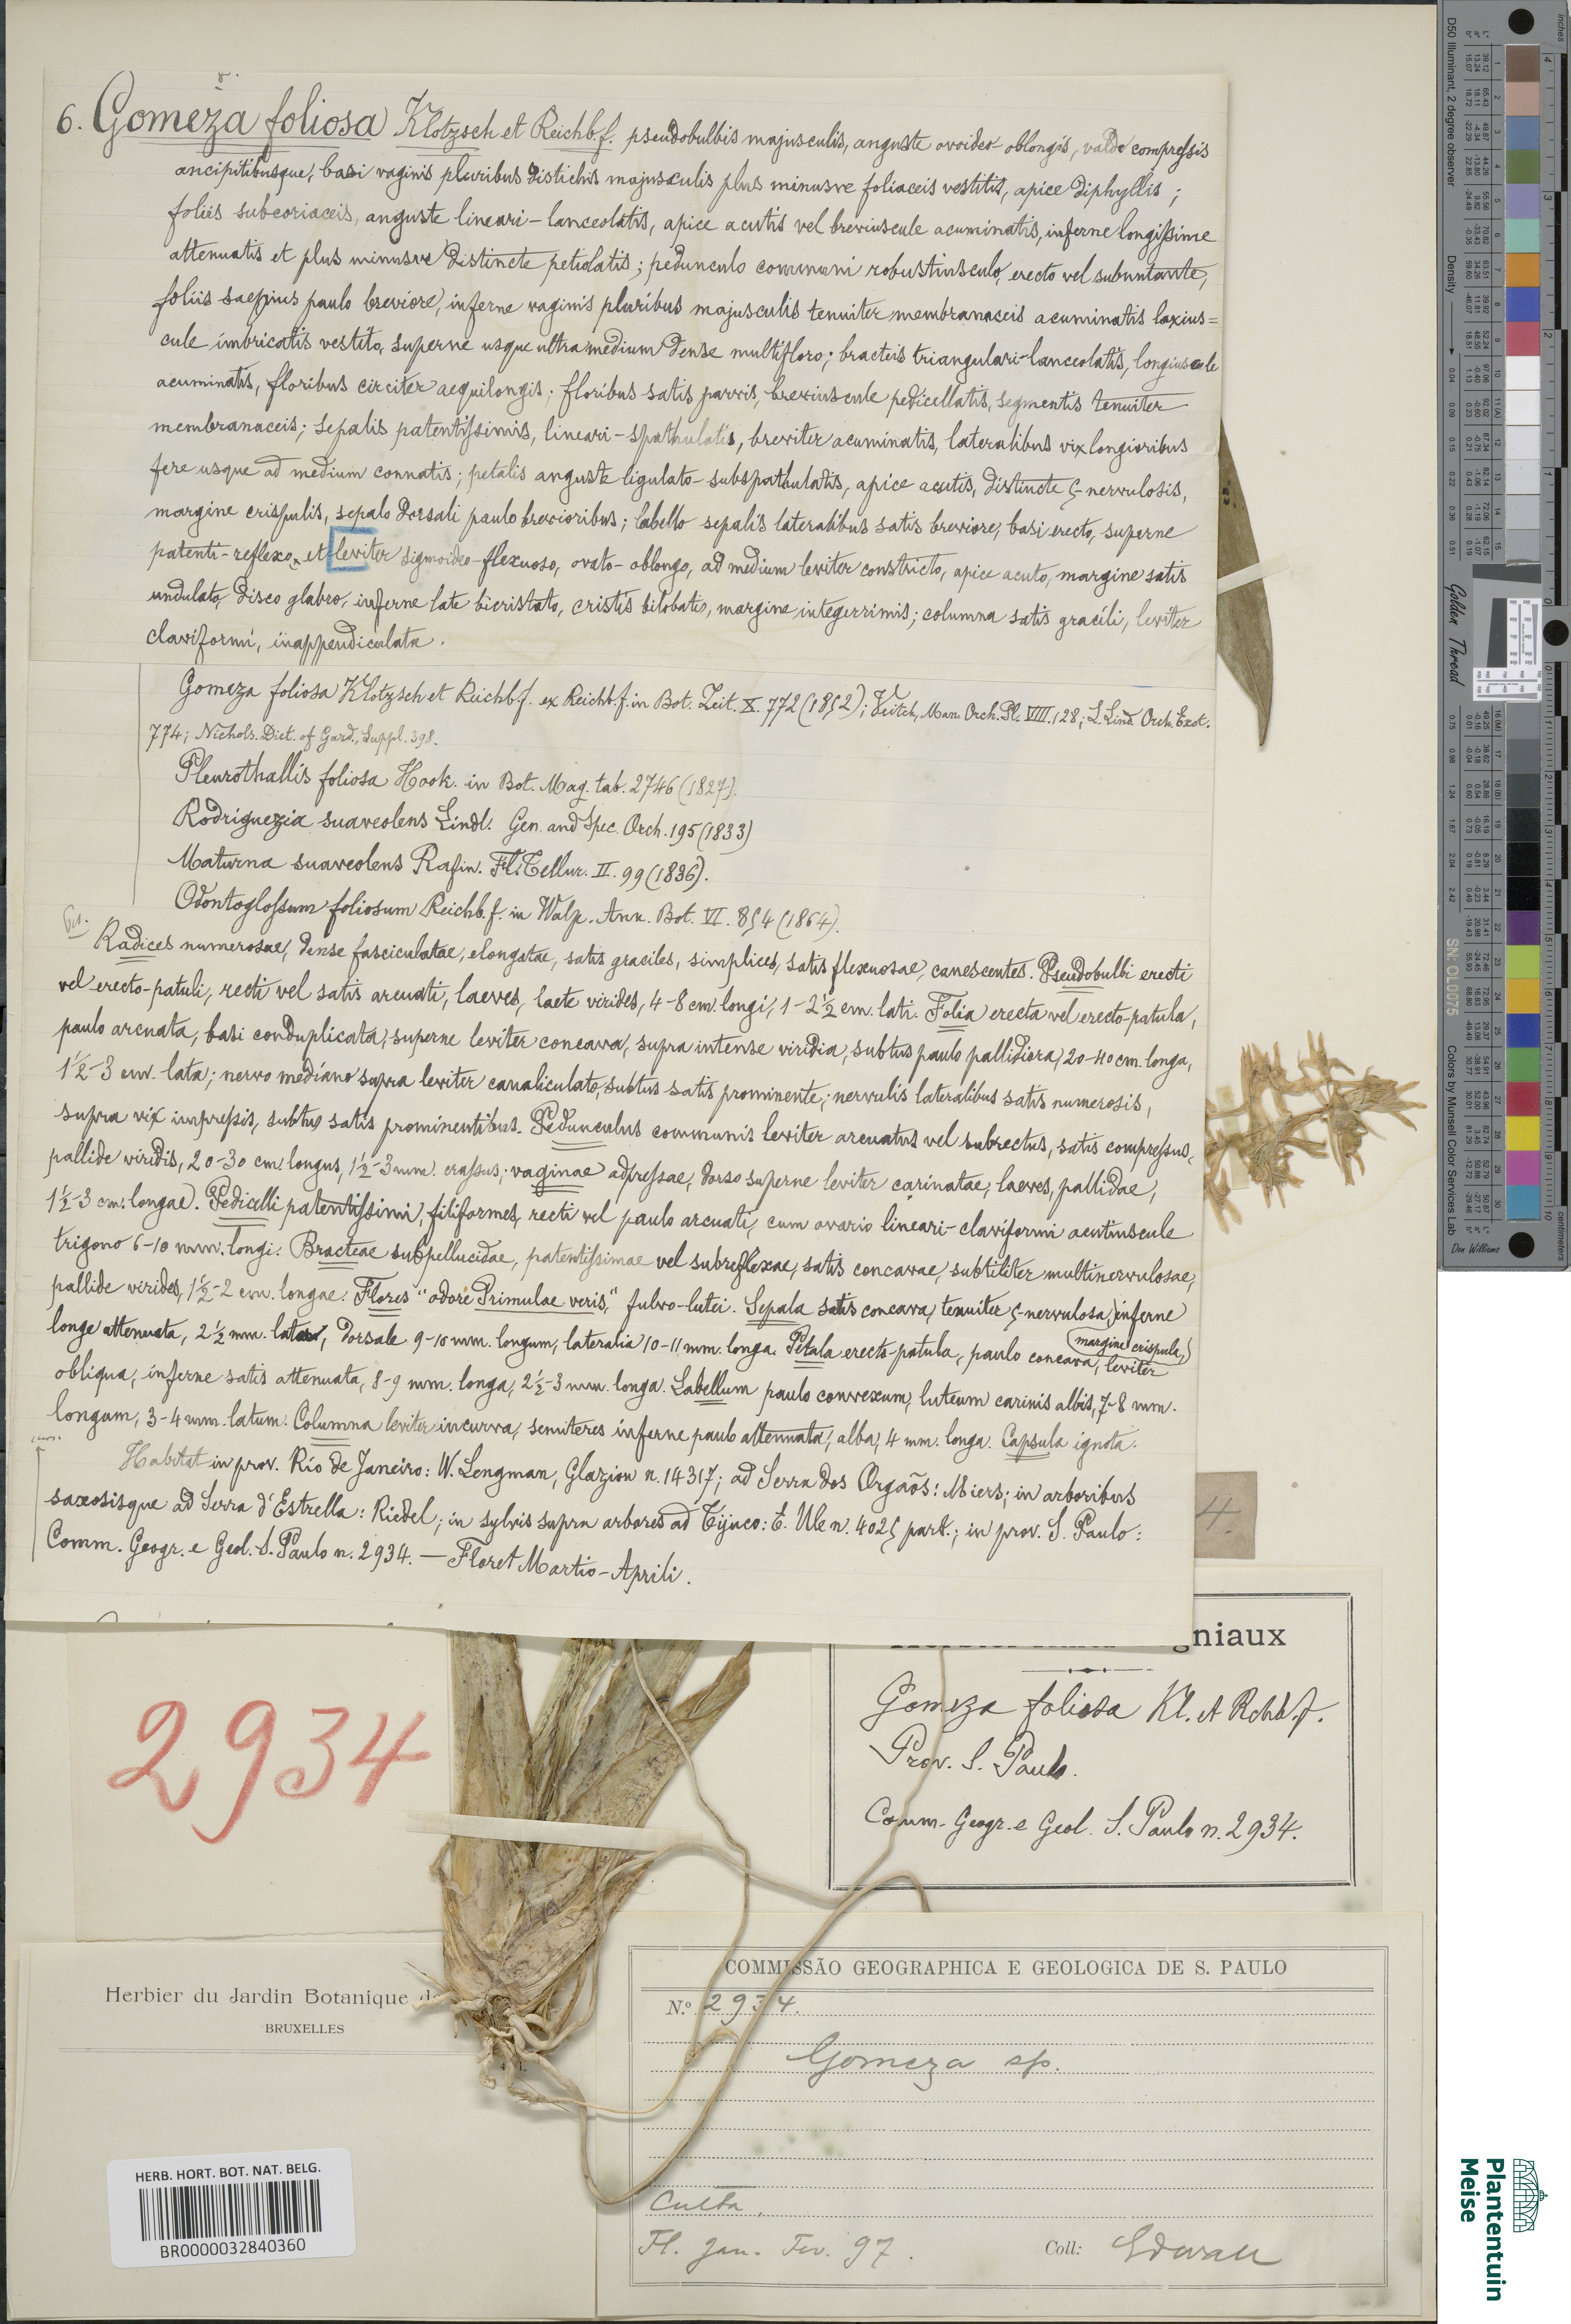 6. Gomeza foliosa Klotzsch et Reichb. f. pseudobulbis majusculis, anguste ovoideo-oblongis, valde compressis
ancipitibusque, basi vaginis pluribus distichis majusculis plus minusve foliaceis vestitis, apice diphyllis;
foliis subcoriaceis, anguste lineari-lanceolatis, apice acutis vel breviuscule acuminatis, inferne longissime
attenuatis et plus minusve distincte petiolatis; pedunculo communi robustiusculo, erecto vel subnutante,
foliis saepius paulo breviore, inferne vaginis pluribus majusculis tenuiter membranaceis acuminatis laxius=
cule imbricatis vestito, superne usque ultra medium dense multifloro; bracteis triangulari-lanceolatis, longiuscule
acuminatis, floribus circiter aequilongis; floribus satis parvis, breviuscule pedicellatis, segmentis tenuiter
membranaceis; sepalis patentissimis, lineari-spathulatis, breviter acuminatis, lateralibus vix longioribus
fere usque ad medium connatis; petalis anguste ligulato-subspathulatis, apice acutis, distincte 5-nervulosis,
margine crispulis, sepalo dorsali paulo brevioribus; labello sepalis lateralibus satis breviore, basi erecto, superne
patenti-reflexo, et leviter sigmoideo-flexuoso, ovato-oblongo, ad medium leviter constricto, apice acuto, margine satis
undulato, disco glabro, inferne late bicristato, cristis bilobatis, margine integerrimis; columna satis gracili, leviter
claviformi, inappendiculata.
Gomeza foliosa Klotzsch et Reichb. f. ex Reichb. f. in Bot. Zeit. X. 772 (1852); Veitch, Man. Orch. Pl. VIII. 128; L. Lind. Orch. Exot.
774; Nichols. Dict. of Gard., Suppl. 398.
Pleurothallis foliosa Hook. in Bot. Mag. tab. 2746 (1827).
Rodriguezia suaveolens Lindl. Gen. and Spec. Orch. 195 (1833)
Maturna suaveolens Rafin. Fl. Tellur. II. 99 (1836).
Odontoglossum foliosum Reichb. f. in Walp. Ann. Bot. VI. 854 (1864).
Radices numerosae, dense fasciculatae, elongatae, satis graciles, simplices, satis flexuosae, canescentes. Pseudobulbi erecti
vel erecto-patuli, recti vel satis arcuati, laeves, laete virides, 4-8 cm. longi, 1-2½ cm. lati. Folia erecta vel erecto-patula,
paulo arcuata, basi conduplicata, superne leviter concava, supra intense viridia, subtus paulo pallidiora, 20-40 cm. longa,
1½-3 cm. lata; nervo mediano supra leviter canaliculato, subtus satis prominente; nervulis lateralibus satis numerosis,
supra vix impressis, subtus satis prominentibus. Pedunculus communis leviter arcuatus vel subrectus, satis compressus,
pallide viridis, 20-30 cm. longus, 1½-3 mm. crassus; vaginae adpressae, dorso superne leviter carinatae, laeves, pallidae,
1½-3 cm. longae. Pedicelli patentissimi, filiformes, recti vel paulo arcuati, cum ovario lineari-claviformi acutiuscule
trigono 6-10 mm. longi. Bracteae subpellucidae, patentissimae vel subreflexae, satis concavae, subtiliter multinervulosae,
pallide virides, 1½-2 cm. longae. Flores "odore Primulae veris," fulvo-lutei. Sepala satis concava, tenuiter 5-nervulosa, inferne
longe attenuata, 2½ mm. lata, dorsale 9-10 mm. longum, lateralia 10-11 mm. longa. Petala erecto-patula, paulo concava, (margine crispula,) leviter
obliqua, inferne satis attenuata, 8-9 mm. longa, 2½-3 mm. longa. Labellum paulo convexum, luteum carinis albis, 7-8 mm.
longum, 3-4 mm. latum. Columna leviter incurva, semiteres inferne paulo attenuata, alba, 4 mm. longa. Capsula ignota.
Habitat in prov. Rio de Janeiro: W. Lengman, Glaziou n. 14317; ad Serra dos Orgaõs: Miers; in arboribus
saxosisque ad Serra d'Estrella: Riedel; in sylvis supra arbores ad Tijuco: E. Ule n. 4025 part.; in prov. S. Paulo:
Comm. Geogr. e Geol. S. Paulo n. 2934. — Floret Martio-Aprili.
4.
gniaux
Gomeza foliosa Kl. et Rchb. f.
Prov. S. Paulo.
Comm. Geogr. e Geol. S. Paulo n. 2934.
2934
Herbier du Jardin Botanique de
BRUXELLES
COMMISSÃO GEOGRAPHICA E GEOLOGICA DE S. PAULO
N.º 2934.
Gomeza sp.
Culta,
Fl. Jan. Fev. 97.
Coll: Edwall
HERB. HORT. BOT. NAT. BELG.
BR0000032840360
Plantentuin
Meise
D50 Illuminant, 2 degree observer
Density
Golden Thread
SN: OL0075
Colors by Munsell Color Services Lab
Don Williams
inches
centimeters